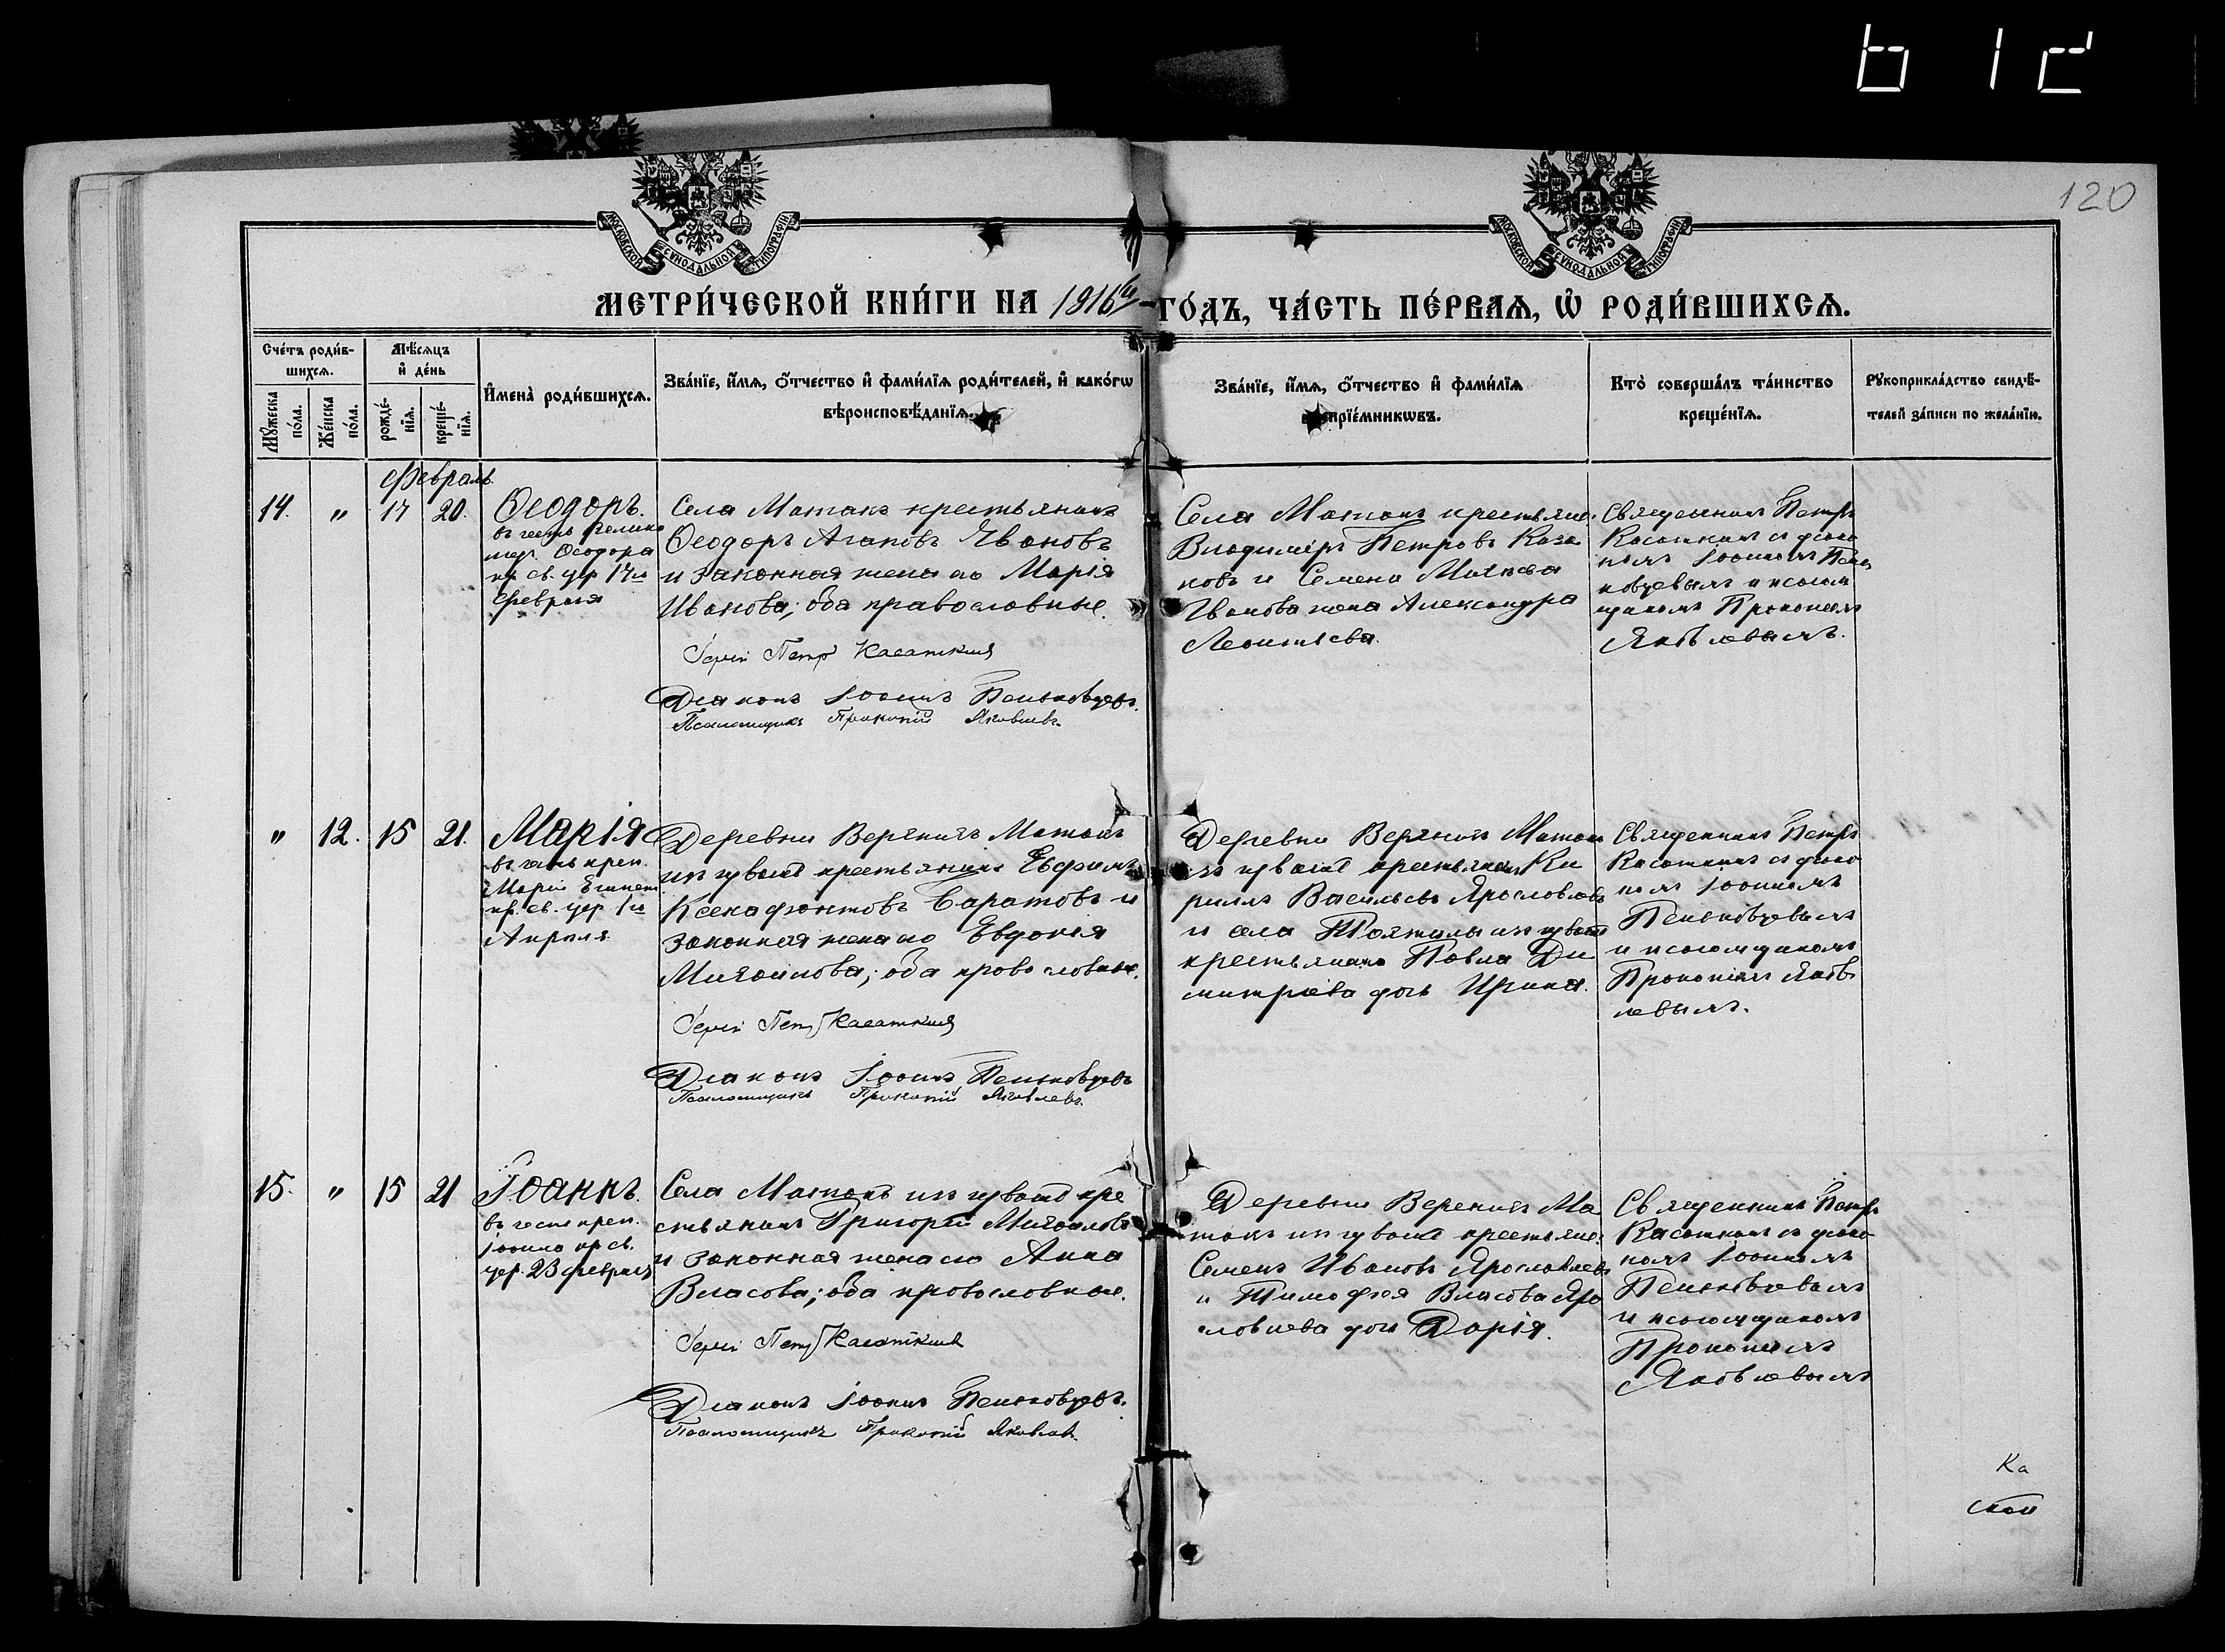 120
МОСКОВСКОЙ СѴНОДАЛЬНОЙ ТИПОГРАФІИ
МОСКОВСКОЙ СѴНОДАЛЬНОЙ ТИПОГРАФІИ
МЕТРИ́ЧЕСКОЙ КНИ́ГИ НА 1916й ГО́ДЪ, ЧА́СТЬ ПЕ́РВАѦ, Ѡ҆ РОДИ́ВШИХСѦ.
Сче́тъ роди́в-
шихсѧ.
Мѣ́сѧцъ
и҆ де́нь
Мꙋ́жеска
по́ла.
Же́нска
по́ла.
рожде́-
нїѧ.
креще́-
нїѧ.
И҆мена̀ роди́вшихсѧ.
Зва́нїе, и҆́мѧ, ѻ҆́тчество и҆ фами́лїѧ роди́телей, и҆ како́гѡ
вѣроисповѣ́данїѧ.
Зва́нїе, и҆́мѧ, ѻ҆́тчество и҆ фами́лїѧ
прїе́мникѡвъ.
Кто̀ соверша́лъ та́инство
креще́нїѧ.
Рꙋкоприкла́дство свидѣ́-
телей за́писи по жела́нїю.
Февраль.
14.
"
17
20.
Ѳеодоръ.
въ честь велико
муч. Ѳеодора
пр. св. цер 17го
Февраля
Села Матакъ крестьянинъ
Ѳеодоръ Агаповъ Ивановъ
и законная жена его Марія
Иванова; оба православные.
Іерей Петр Касаткинъ
Діаконъ Іоаннъ Пеньковцевъ.
Псаломщикъ Прокопій Яковлевъ.
Села Матакъ крестьяне:
Владиміръ Петровъ Каза
ковъ и Семена
Иванова жена Александра
Леонтьева.
Священникъ Петръ
Касаткинъ съ діако
номъ Іоанномъ Пень
ковцевымъ и псалом
щикомъ Прокопіемъ
Яковлевымъ.
"
12.
15
21.
Марія
въ честь преп.
Маріи Египет
пр. св. цер 1го
Апрѣля
Деревни Верхнихъ Матакъ
изъ чувашъ крестьянинъ Евфимъ
Ксенофонтовъ Баратовъ и
законная жена его Евдокія
Михаилова; оба православные.
Іерей Петр Касаткинъ
Діаконъ Іоаннъ Пеньковцевъ
Псаломщикъ Прокопій Яковлевъ.
Деревни Верхнихъ Матакъ
изъ чувашъ крестьянинъ Ки
риллъ Васильевъ Ярославлевъ
и села изъ чувашъ
крестьянина Павла Ди
митріева дочь Ирина.
Священникъ Петръ
Касаткинъ съ діако
номъ Іоанномъ
Пеньковцевымъ
и псаломщикомъ
Прокопіемъ Яков
левымъ.
15.
"
15
21
Іоаннъ.
въ честь преп.
Іоанна пр св.
цер. 23 февраля
Села Матакъ изъ чувашъ кре
стьянинъ Григорій Михаиловъ
и законная жена его Анна
Власова; оба православные.
Іерей Петр Касаткинъ
Діаконъ Іоаннъ Пеньковцевъ.
Псаломщикъ Прокопій Яковлевъ.
Деревни Верхнихъ Ма
такъ изъ чувашъ крестьяне:
Семенъ Ивановъ Ярославлевъ
и Тимофея Власова Яро
славлева дочь Дарія.
Священникъ Петръ
Касаткинъ съ діако
номъ Іоанномъ
Пеньковцевымъ
и псаломщикомъ
Прокопіемъ
Яковлевымъ
Ка
ской